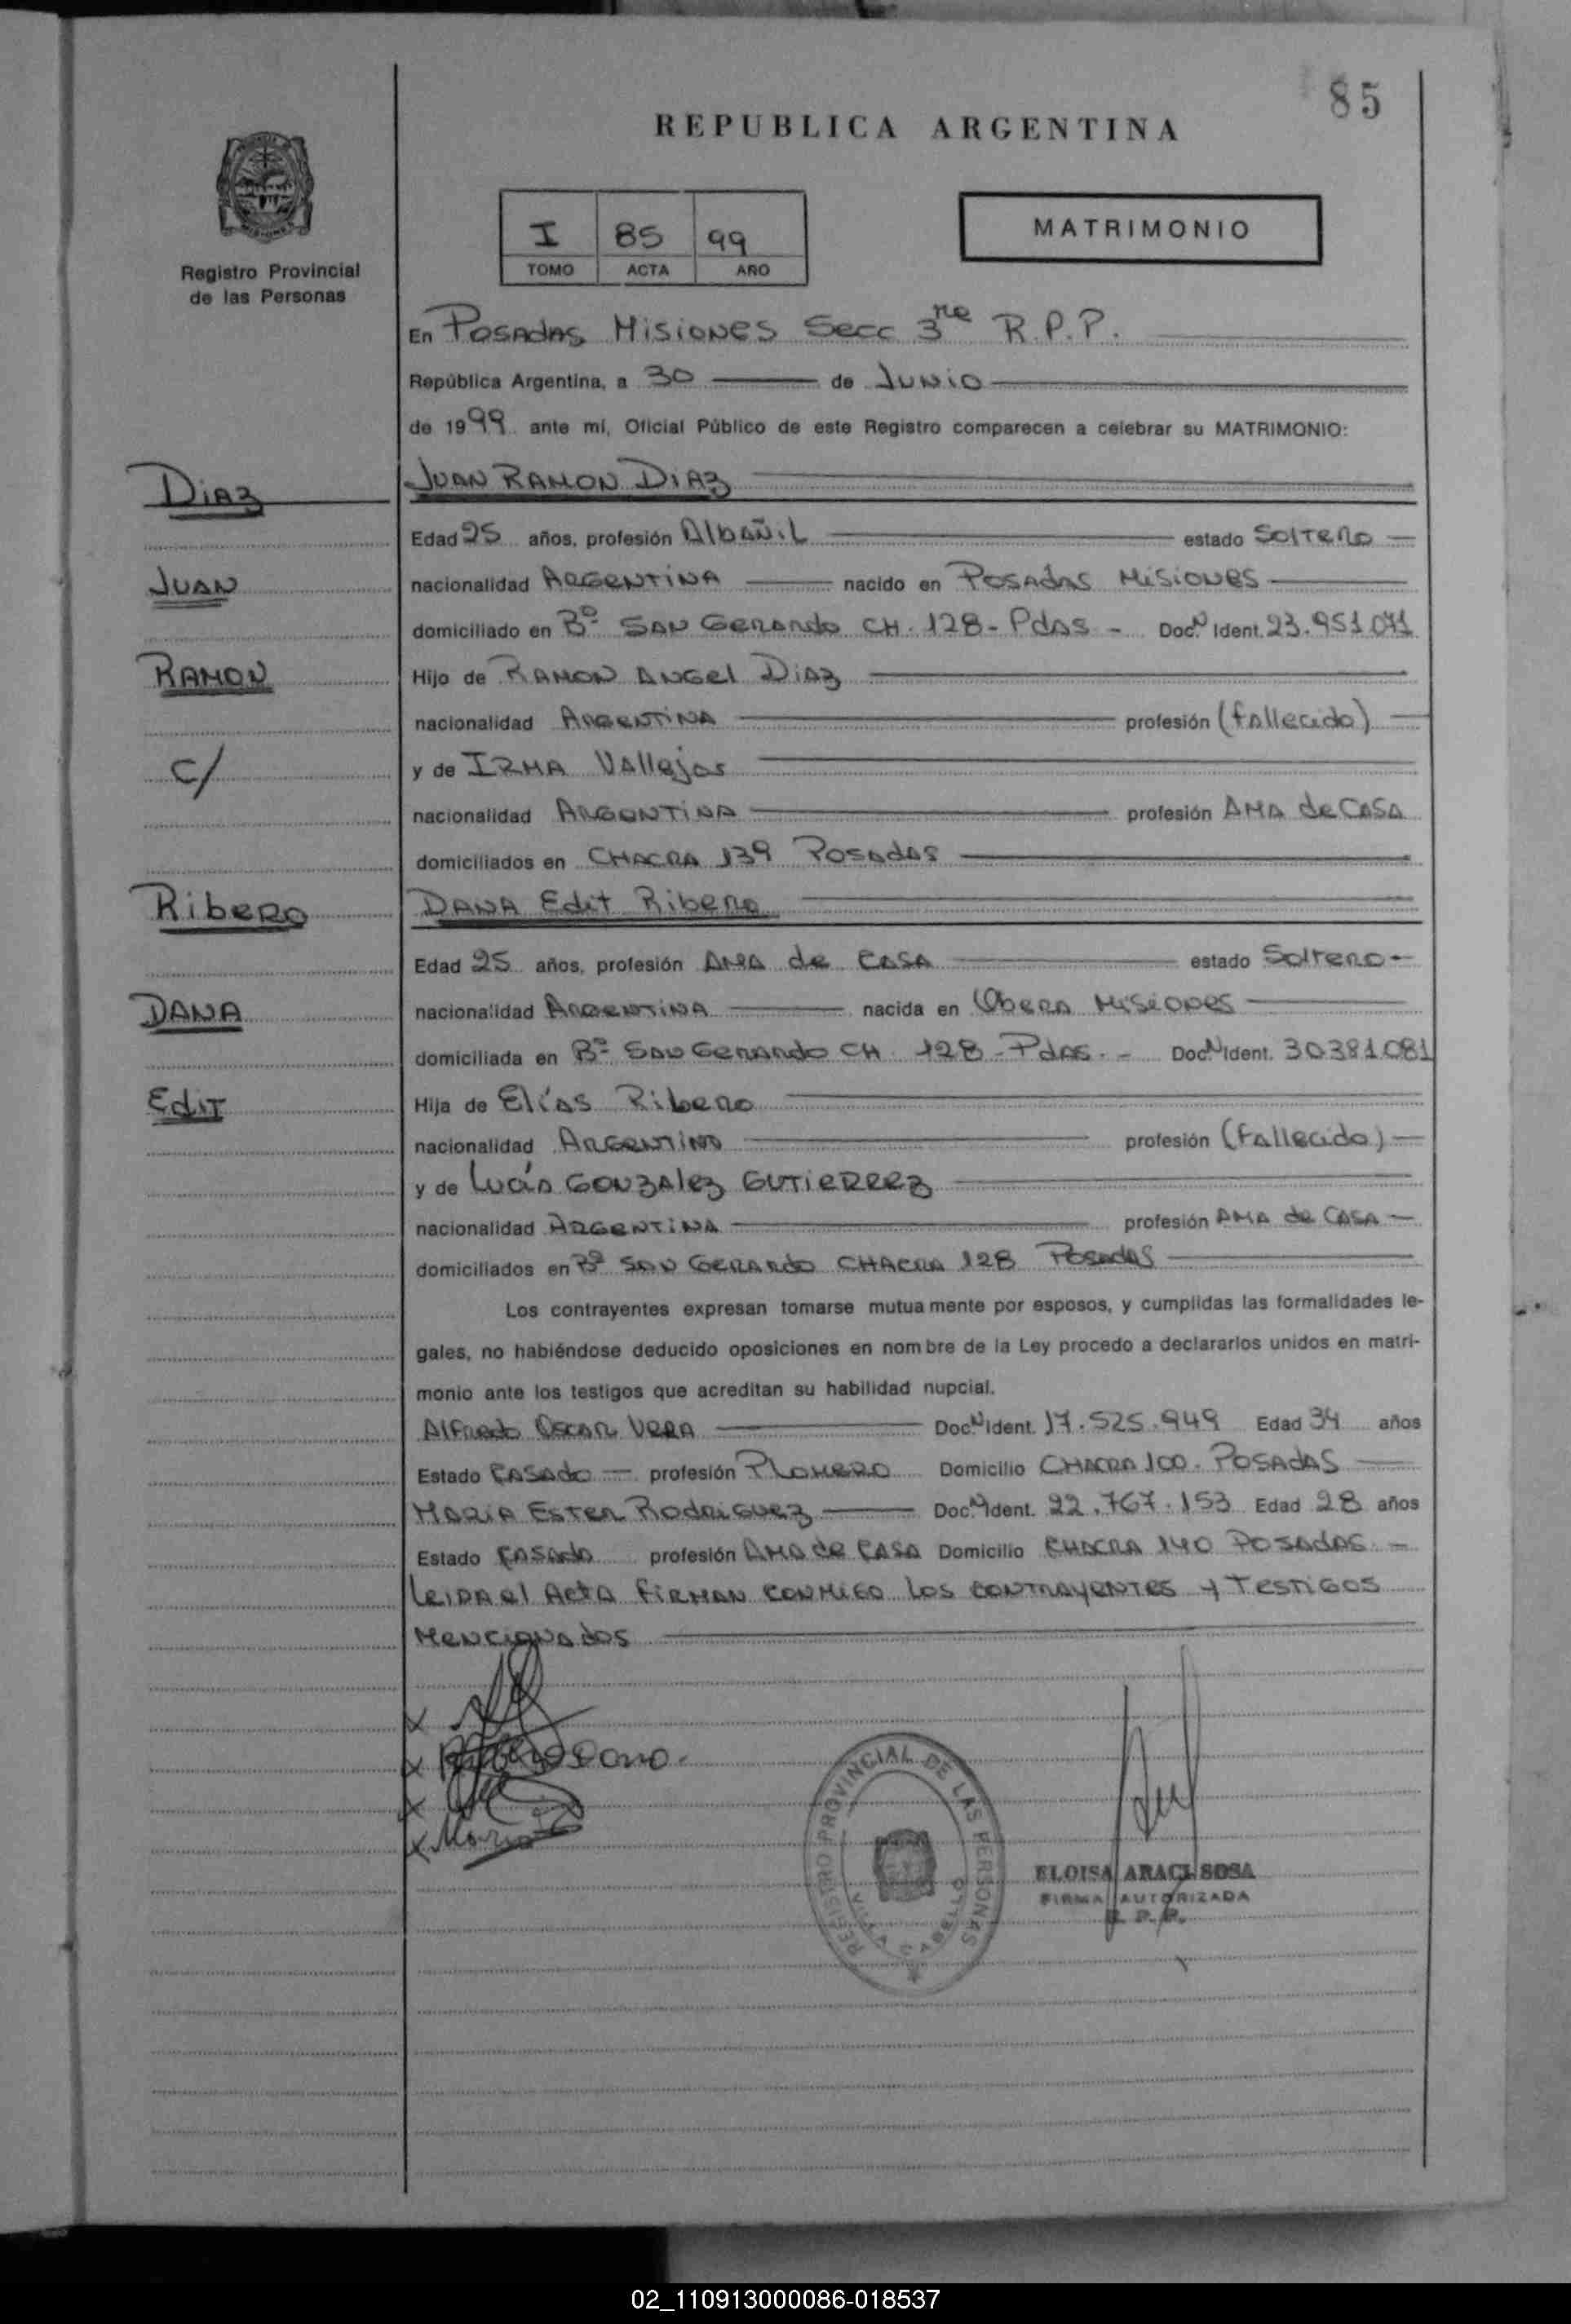 85
REPUBLICA ARGENTINA
I 85 99
TOMO ACTA AÑO
MATRIMONIO
Registro Provincial
de las Personas
En Posadas Misiones Secc 3ra R.P.P.
República Argentina, a 30 de Junio
de 1999 ante mí, Oficial Público de este Registro comparecen a celebrar su MATRIMONIO:
Diaz
Juan Ramon Diaz
Edad 25 años, profesión Albañil estado Soltero
Juan
nacionalidad Argentina nacido en Posadas Misiones
domiciliado en Bº San Gerardo CH. 128 - Pdas - Doc. N Ident. 23.951.071
Ramon
Hijo de Ramon Angel Diaz
nacionalidad Argentina profesión (fallecido)
C/
y de Irma Vallejos
nacionalidad Argentina profesión Ama de Casa
domiciliados en Chacra 139 Posadas
Ribero
Dana Edit Ribero
Edad 25 años, profesión Ama de Casa estado Soltero -
Dana
nacionalidad Argentina nacida en Obera Misiones
domiciliada en Bº San Gerardo CH 128 - Pdas. - Doc. N Ident. 30381.081
Edit
Hija de Elías Ribero
nacionalidad Argentino profesión (Fallecido)
y de Lucía Gonzalez Gutierrez
nacionalidad Argentina profesión Ama de Casa
domiciliados en Bº San Gerardo Chacra 128 Posadas
Los contrayentes expresan tomarse mutuamente por esposos, y cumplidas las formalidades le-
gales, no habiéndose deducido oposiciones en nombre de la Ley procedo a declararlos unidos en matri-
monio ante los testigos que acreditan su habilidad nupcial.
Alfredo Oscar Vera Doc. N Ident. 17.525.949 Edad 34 años
Estado Casado profesión Plomero Domicilio Chacra 100. Posadas
Maria Ester Rodriguez Doc. N Ident. 22.767.153 Edad 28 años
Estado Casada profesión Ama de Casa Domicilio Chacra 140 Posadas -
Leida el Acta firman conmigo los contrayentes y testigos
Mencionados
x
x Ribero Dana.
x
x Maria
REGISTRO PROVINCIAL DE LAS PERSONAS
VILLA CABELLO
ELOISA ARACI SOSA
FIRMA AUTORIZADA
R. P. P.
02_110913000086-018537